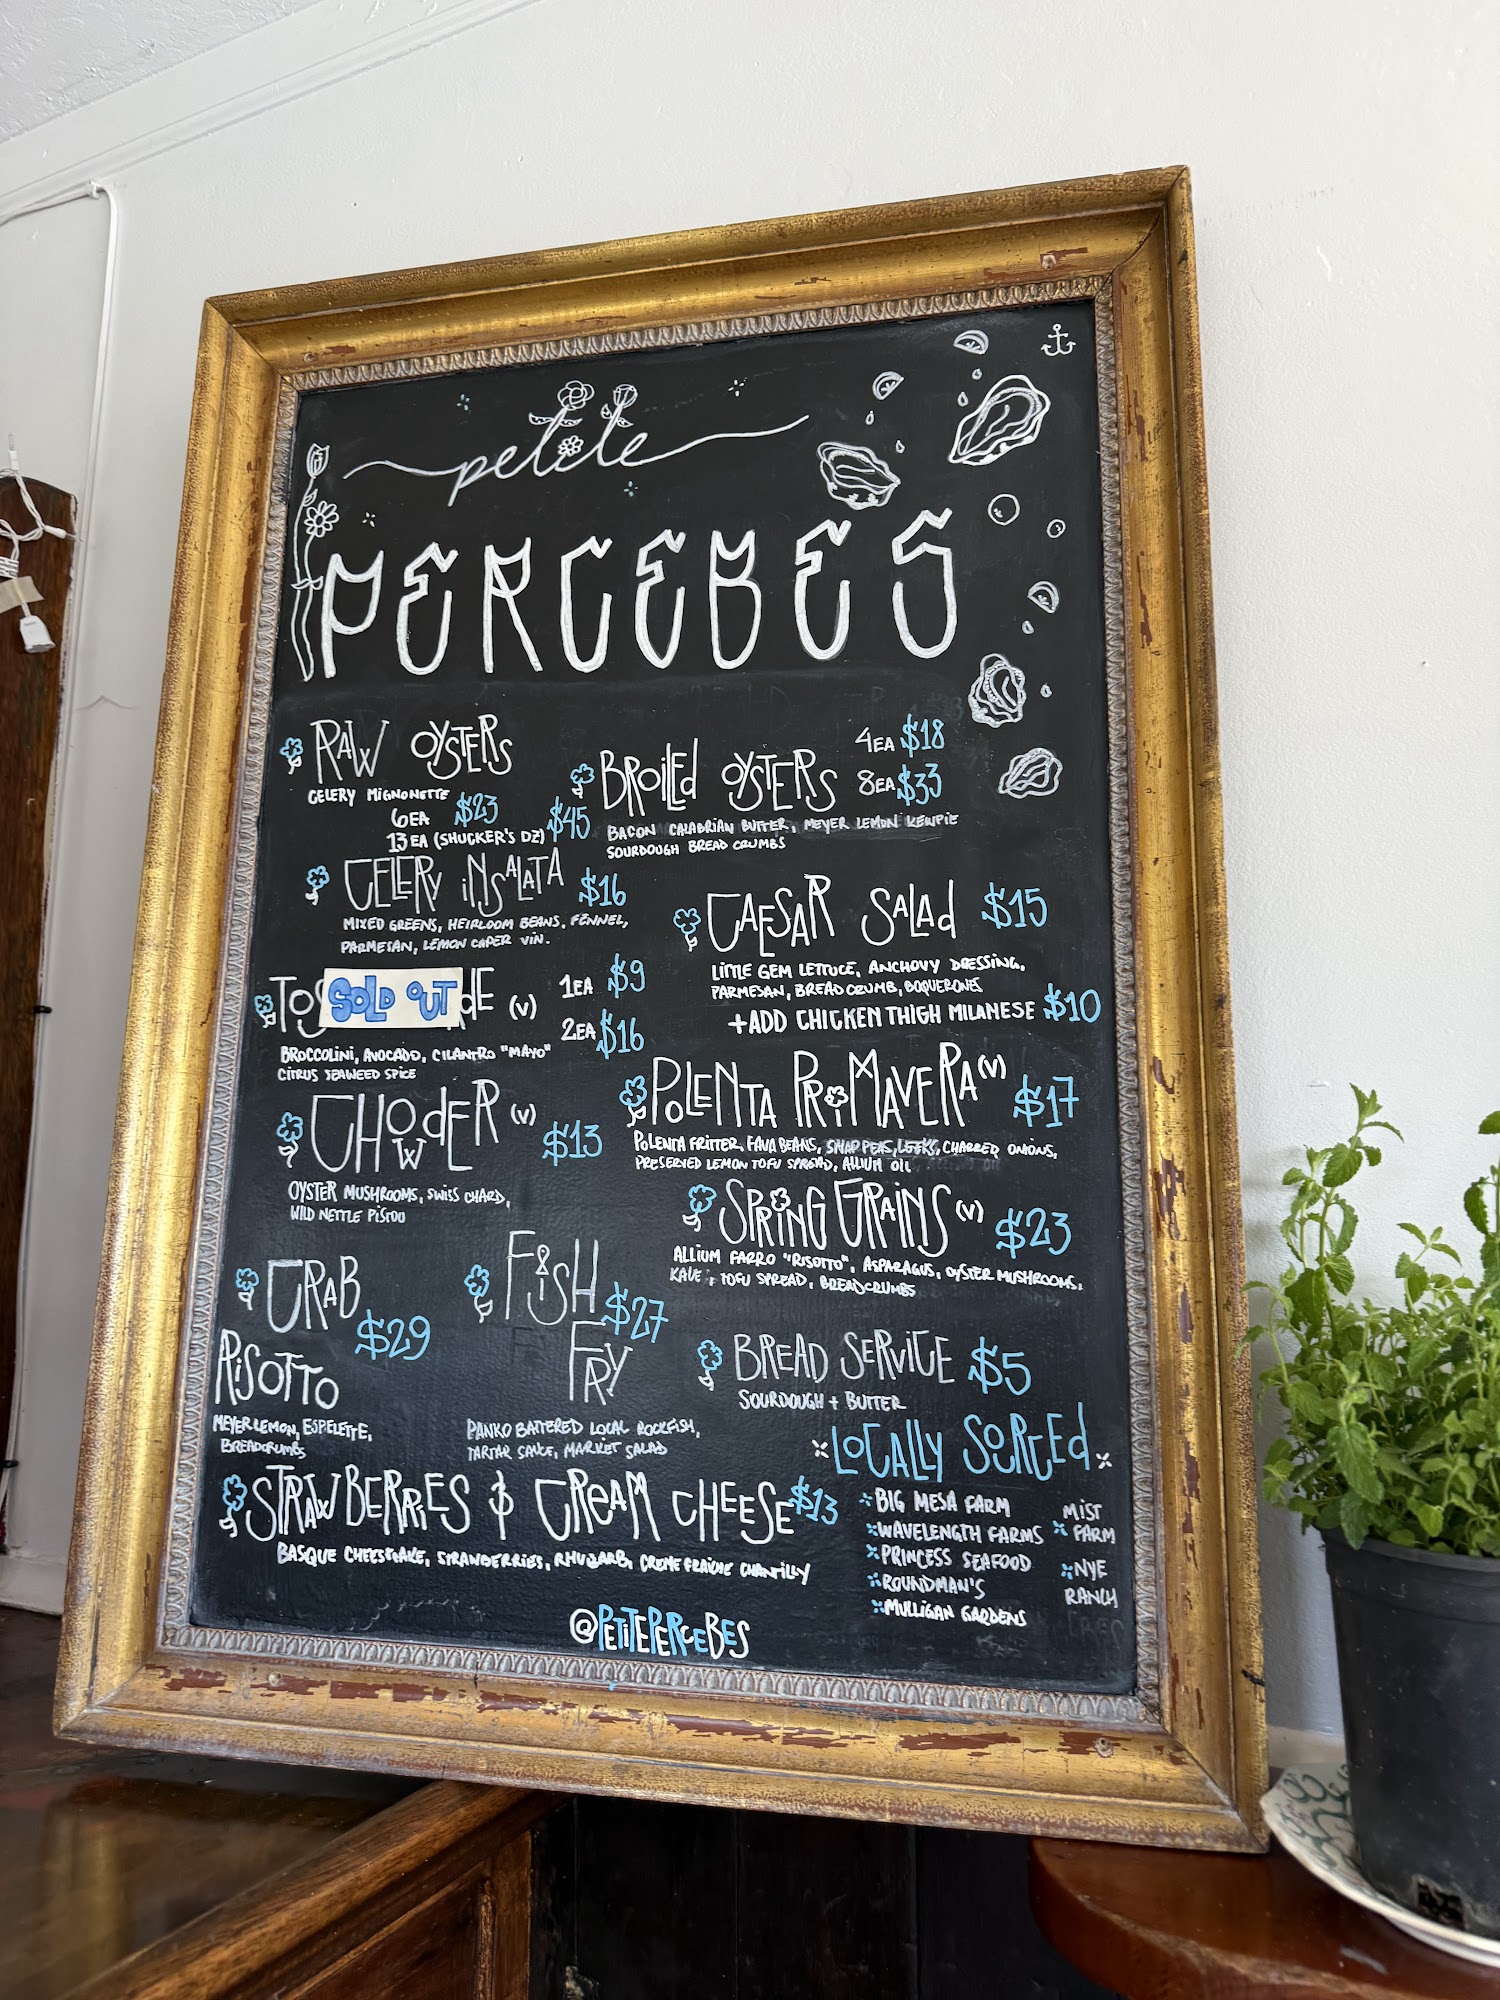 petite
PERCEBES
RAW OYSTERS
CELERY MIGNONETTE
6EA $23
13EA (SHUCKER'S DZ) $45
BROILED OYSTERS
4EA $18
8EA $33
BACON CALABRIAN BUTTER, MEYER LEMON KEWPIE
SOURDOUGH BREAD CRUMBS
CELERY INSALATA $16
MIXED GREENS, HEIRLOOM BEANS, FENNEL,
PARMESAN, LEMON CAPER VIN.
CAESAR SALAD $15
LITTLE GEM LETTUCE, ANCHOVY DRESSING,
PARMESAN, BREAD CRUMB, BOQUERONES
+ADD CHICKEN THIGH MILANESE $10
SOLD OUT (V)
1EA $9
2EA $16
BROCCOLINI, AVOCADO, CILANTRO "MAYO"
CITRUS SEAWEED SPICE
CHOWDER (V) $13
OYSTER MUSHROOMS, SWISS CHARD,
WILD NETTLE PISTOU
POLENTA PRIMAVERA (V) $17
POLENTA FRITTER, FAVA BEANS, SNAP PEAS, LEEKS, CHARRED ONIONS,
PRESERVED LEMON TOFU SPREAD, ALLIUM OIL
SPRING GRAINS (V) $23
ALLIUM FARRO "RISOTTO", ASPARAGUS, OYSTER MUSHROOMS,
KALE, TOFU SPREAD, BREADCRUMBS
CRAB
RISOTTO $29
MEYER LEMON, ESPELETTE,
BREADCRUMBS
FISH
FRY $27
PANKO BATTERED LOCAL ROCKFISH,
TARTAR SAUCE, MARKET SALAD
BREAD SERVICE $5
SOURDOUGH + BUTTER
STRAWBERRIES & CREAM CHEESE $13
BASQUE CHEESECAKE, STRAWBERRIES, RHUBARB, CREME FRAICHE CHANTILLY
LOCALLY SORCED
BIG MESA FARM
WAVELENGTH FARMS
PRINCESS SEAFOOD
ROUNDMAN'S
MULLIGAN GARDENS
MIST
FARM
NYE
RANCH
@PETITEPERCEBES